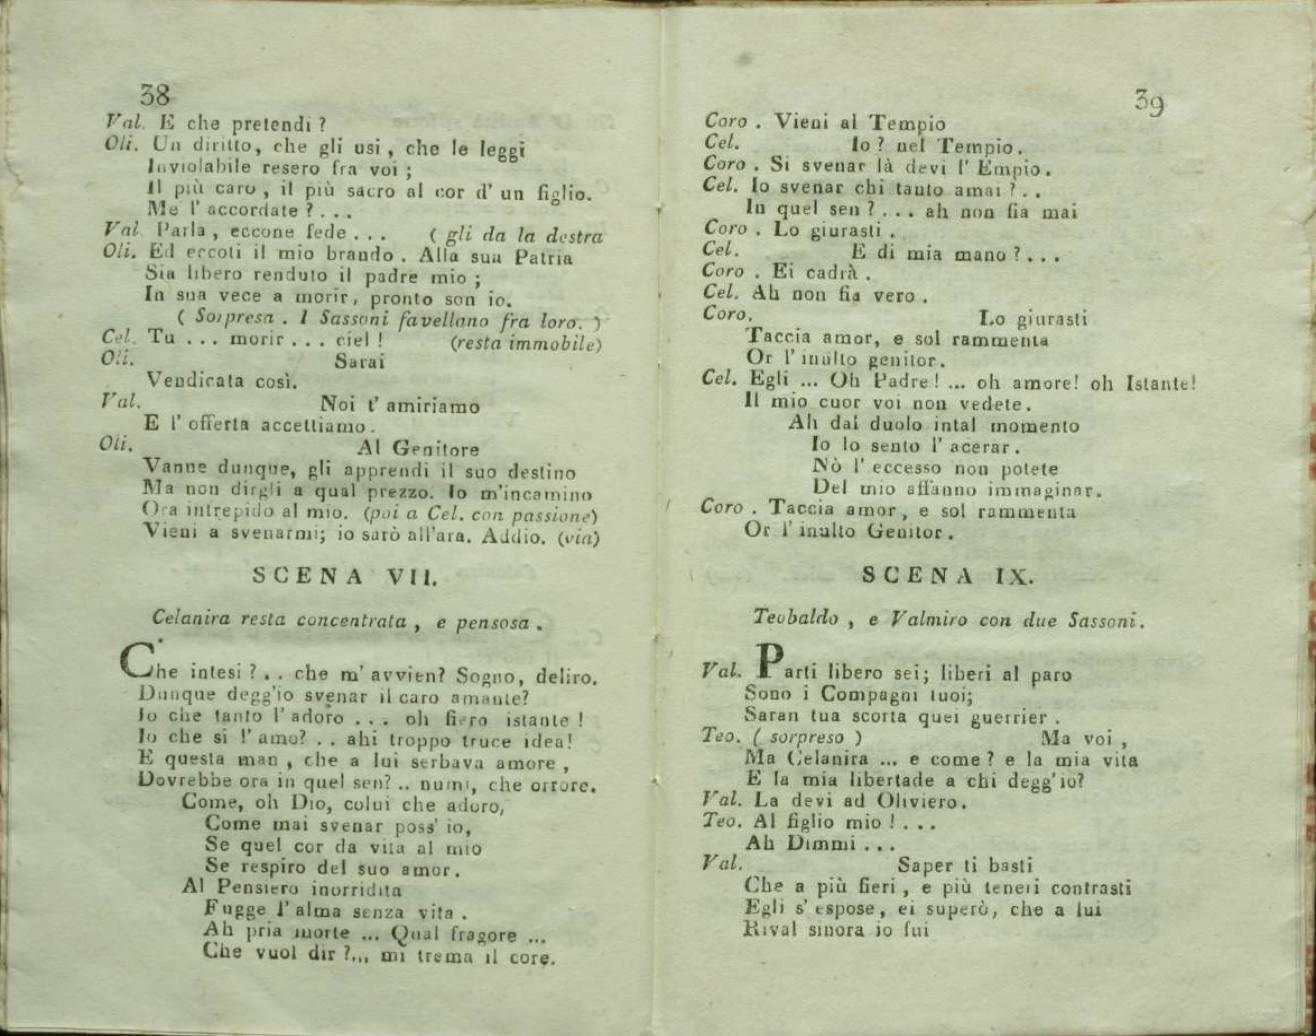 38
Val. E che pretendi ?
Oli. Un diritto, che gli usi , che le leggi
Inviolabile resero fra voi ;
Il più caro , il più sacro al cor d' un figlio.
Me l' accordate ? . . .
Val. Parla , eccone fede . . . ( gli da la destra
Oli. Ed eccoti il mio brando . Alla sua Patria
Sia libero renduto il padre mio ;
In sua vece a morir, pronto son io.
( Sorpresa . I Sassoni favellano fra loro. )
Cel. Tu . . . morir . . . ciel ! (resta immobile)
Oli. Sarai
Vendicata così.
Val. Noi t' amiriamo
E l' offerta accettiamo .
Oli. Al Genitore
Vanne dunque, gli apprendi il suo destino
Ma non dirgli a qual prezzo. Io m'incamino
Ora intrepido al mio. (poi a Cel. con passione)
Vieni a svenarmi; io sarò all'ara. Addio. (via)
SCENA VII.
Celanira resta concentrata , e pensosa .
Che intesi ? . . che m' avvien? Sogno, deliro.
Dunque degg'io svenar il caro amante?
Io che tanto l' adoro . . . oh fiero istante !
Io che sì l' amo? . . ahi troppo truce idea!
E questa man , che a lui serbava amore ,
Dovrebbe ora in quel sen? .. numi, che orrore.
Come, oh Dio, colui che adoro,
Come mai svenar poss' io,
Se quel cor da vita al mio
Se respiro del suo amor.
Al Pensiero inorridita
Fugge l' alma senza vita .
Ah pria morte ... Qual fragore ...
Che vuol dir ?,,, mi trema il core.
39
Coro . Vieni al Tempio
Cel. Io ? nel Tempio .
Coro . Si svenar là devi l' Empio.
Cel. Io svenar chi tanto amai ? . .
In quel sen ? . . . ah non fia mai
Coro . Lo giurasti .
Cel. E di mia mano ? . . .
Coro . Ei cadrà .
Cel. Ah non fia vero .
Coro. Lo giurasti
Taccia amor, e sol rammenta
Or l' inulto genitor.
Cel. Egli ... Oh Padre ! ... oh amore! oh Istante!
Il mio cuor voi non vedete.
Ah dal duolo intal momento
Io lo sento l' acerar.
Nò l' eccesso non potete
Del mio affanno immaginar.
Coro . Taccia amor , e sol rammenta
Or l' inulto Genitor .
SCENA IX.
Teobaldo , e Valmiro con due Sassoni.
Val. Parti libero sei; liberi al paro
Sono i Compagni tuoi;
Saran tua scorta quei guerrier .
Teo. ( sorpreso ) Ma voi ,
Ma Celanira ... e come ? e la mia vita
E la mia libertade a chi degg' io?
Val. La devi ad Oliviero.
Teo. Al figlio mio ! . . .
Ah Dimmi . . .
Val. Saper ti basti
Che a più fieri , e più teneri contrasti
Egli s' espose , ei superò, che a lui
Rival sinora io fui